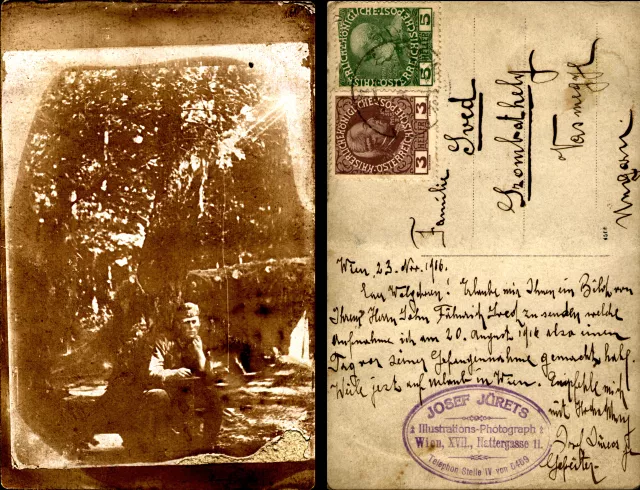 KAISERLICHE KÖNIGLICHE ÖSTERREICHISCHE POST
5 HELLER 5
3 HELLER 3
Familie Sved
Szombathely
Vasmegye
Ungarn
Wien, 23. Nov. 1916.
Euer Wolgeboren! Erlaube mir Ihnen ein Bild von
Ihrem Herrn Sohn Fähnrich Sved zu senden welche
Aufnahme ich am 20. August 1916 also einen
Tag vor seiner Gefangennahme gemacht hab.
Weile jezt auf urlaub in Wien. Empfehle mich
mit
Josef Jürets
Gefreiter
JOSEF JÜRETS
Illustrations-Photograph
Wien, XVII., Rattergasse 11.
Telephon Stelle IV von 6469